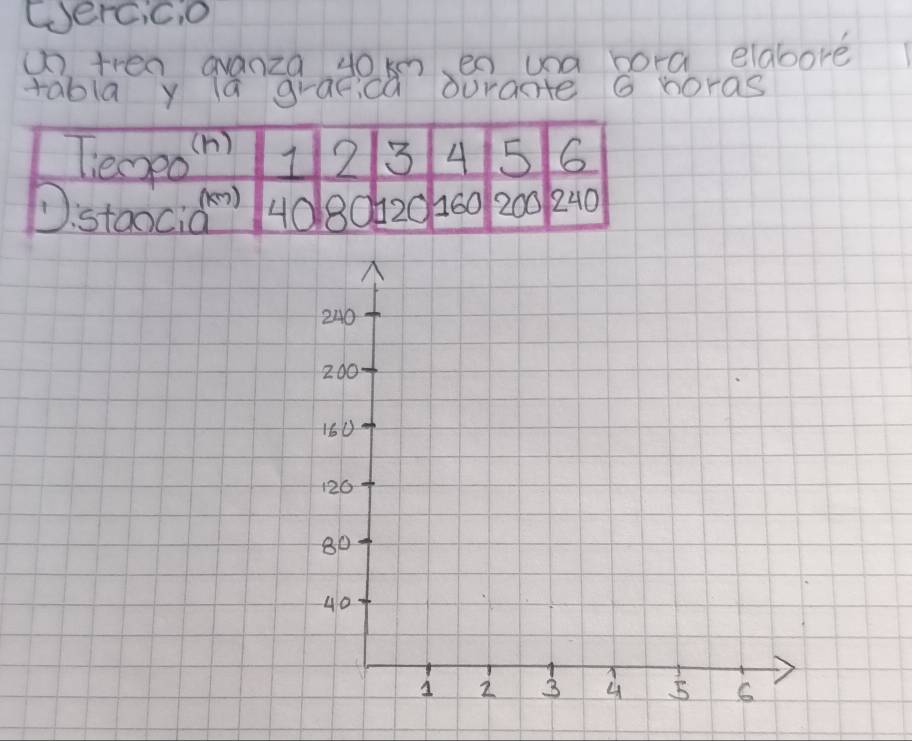 Ejercicio
Un tren avanza 40 km en una hora elaboré
tabla y la grafica durante 6 horas
Tiempo (h) 1 2 3 4 5 6
Distancia (km) 40 80 120 160 200 240
240
200
160
120
80
40
1 2 3 4 5 6